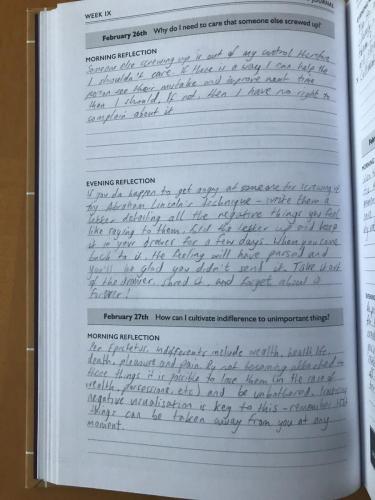 JOURNAL
WEEK IX
February 26th Why do I need to care that someone else screwed up?
MORNING REFLECTION
Someone else screwing up is out of my control therefore
I shouldn't care. If there is a way I can help the
person see their mistake and improve next time
then I should. If not, then I have no right to
complain about it
EVENING REFLECTION
If you do happen to get angry at someone for screwing up
try Abraham Lincoln's technique - write them a
letter detailing all the negative things you feel
like saying to them. Fold the letter up and keep
it in your drawer for a few days. When you come
back to it, the feeling will have passed and
you'll be glad you didn't send it. Take it out
of the drawer, shred it, and forget about it
forever!
February 27th How can I cultivate indifference to unimportant things?
MORNING REFLECTION
Per Epictetus, indifferents include wealth, health, life,
death, pleasure and pain. By not becoming attached to
these things it is possible to lose them (in the case of
wealth, possessions, etc) and be unbothered.
negative visualisation is key to this - remember that
things can be taken away from you at any
moment.